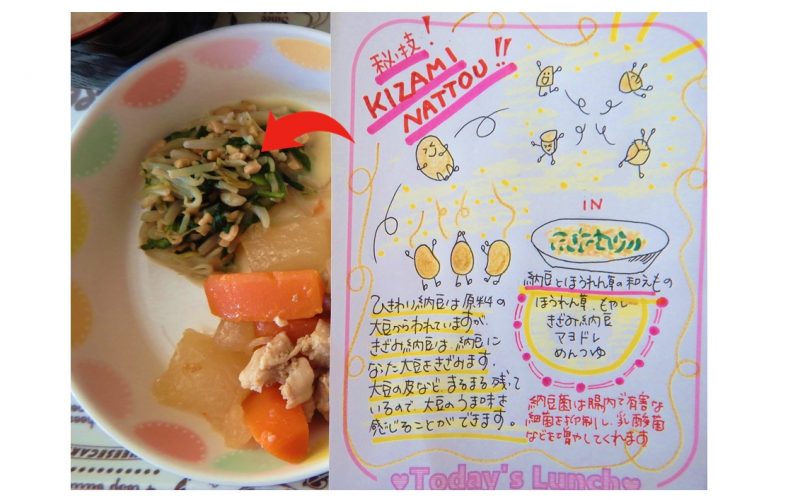 秘技!
KIZAMI
NATTOU!!
IN
納豆とほうれん草の和えもの
ほうれん草、もやし
きざみ納豆
マヨドレ
めんつゆ
ひきわり納豆は原料の
大豆がわれていますが、
きざみ納豆は、納豆に
なった大豆をきざみます。
大豆の皮など、まるまる残って
いるので、大豆のうま味を
感じることができます。
納豆菌は腸内で有害な
細菌を抑制し、乳酸菌
などを増やしてくれます
Today's Lunch